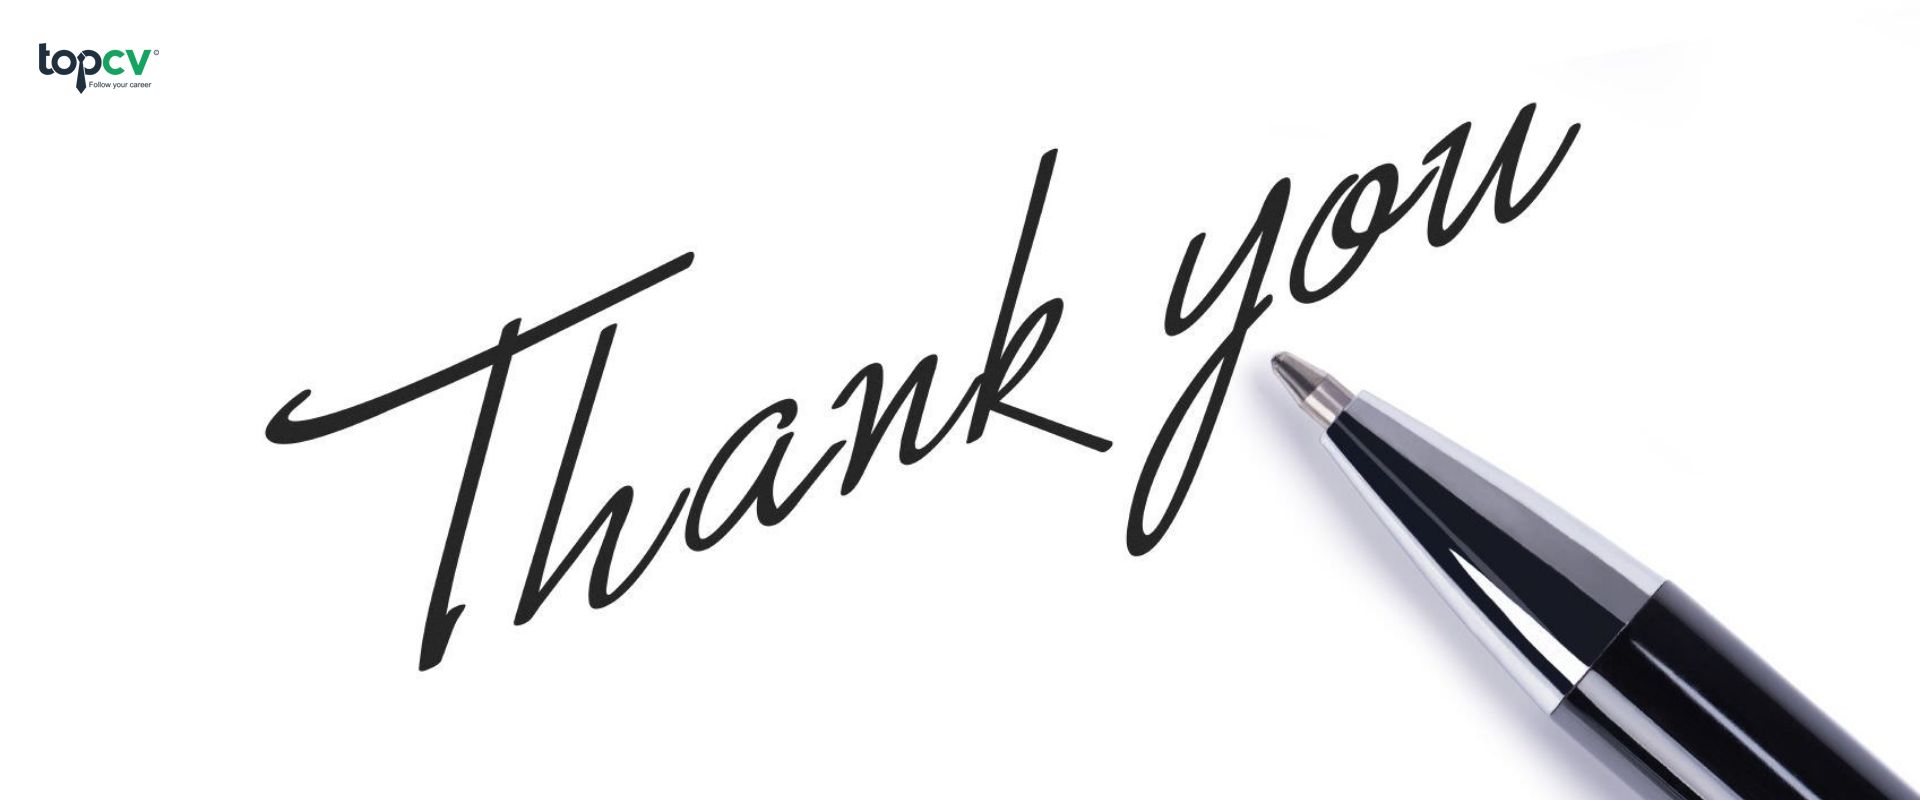 topcv
Follow your career
Thank you